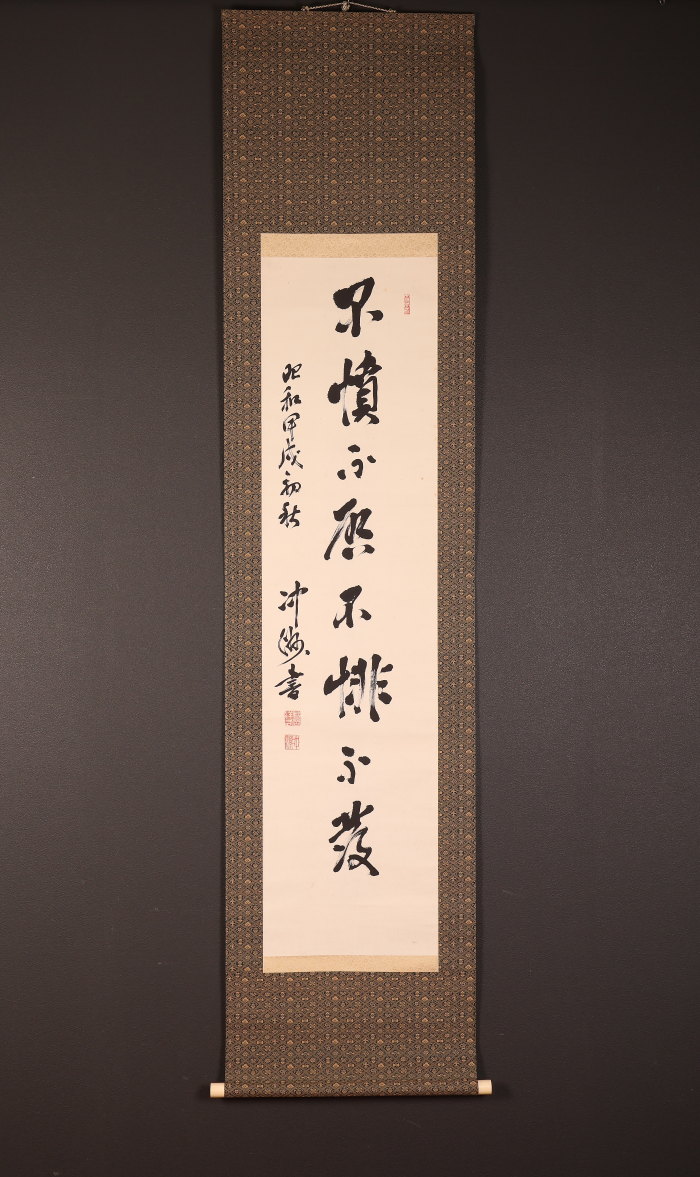 不憤不啓不悱不發
昭和甲戌初秋
冲海書